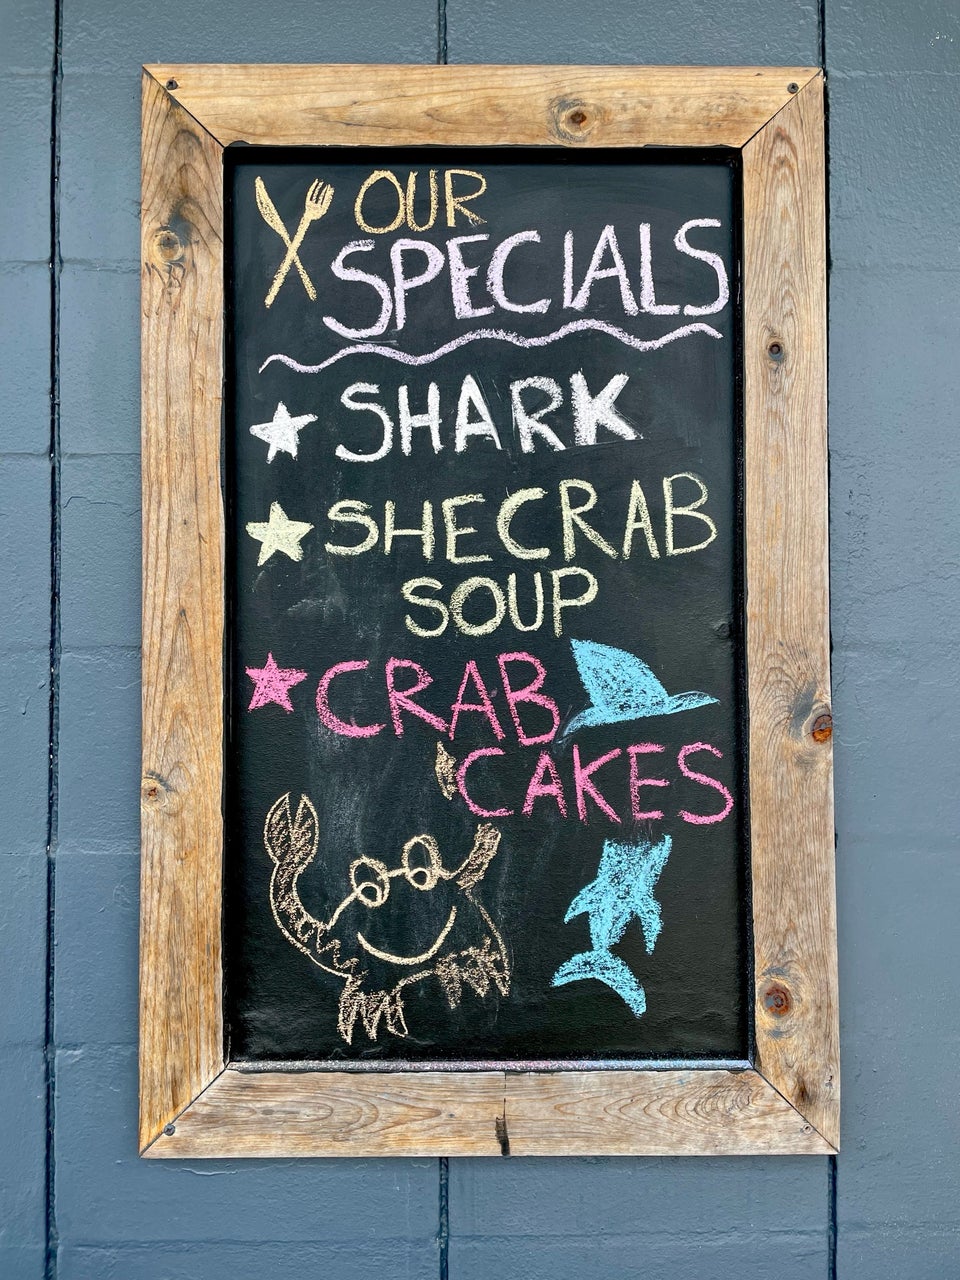 OUR
SPECIALS
SHARK
SHECRAB
SOUP
CRAB
CAKES